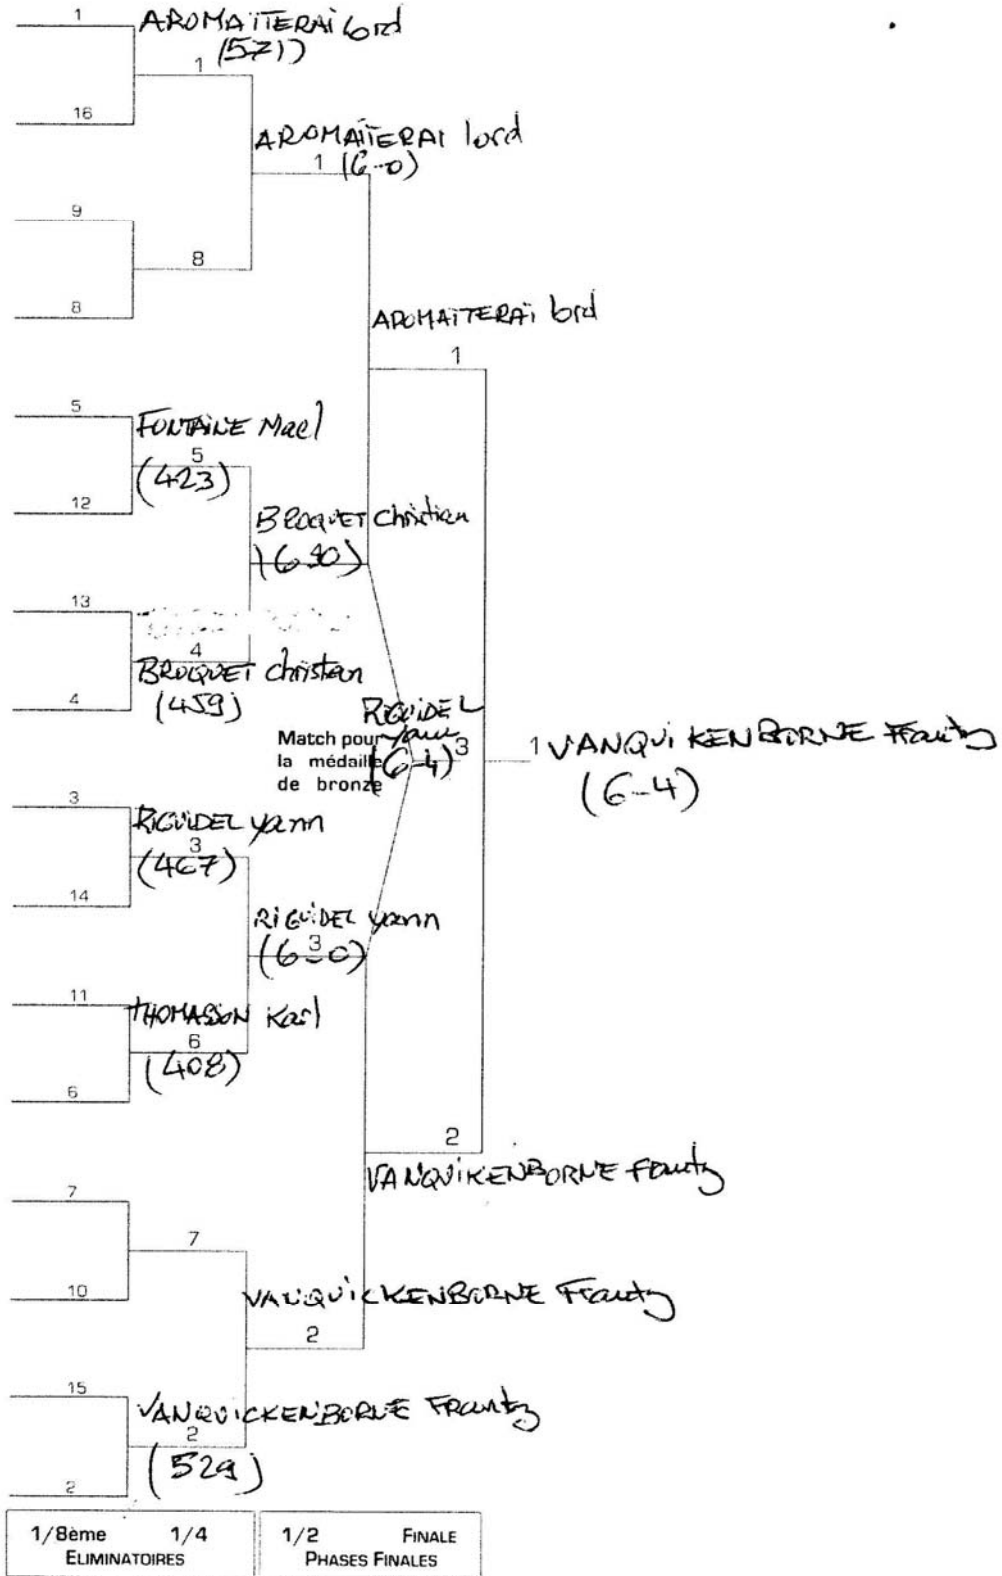 1
AROMAÏTERAÏ lord
(571)
1
16
AROMAÏTERAI lord
1 (6-0)
9
8
8
AROMAÏTERAÏ lord
1
5
FONTAINE Mael
5
(423)
12
BROQUET Christian
13
4
BROQUET Christian
(459)
4
RIGUIDEL
Yann
Match pour
la médaille
de bronze
(6-4) 3
1 VANQUIKENBORNE Frantz
(6-4)
3
RIGUIDEL Yann
3
(467)
14
RIGUIDEL yann
3
(6-0)
11
THOMASSON Karl
6
(408)
6
2
VANQUIKENBORNE Frantz
7
7
10
VANQUICKENBORNE Frantz
2
15
VANQUICKENBORNE Frantz
2
(529)
2
1/8ème 1/4 1/2 FINALE
ELIMINATOIRES PHASES FINALES